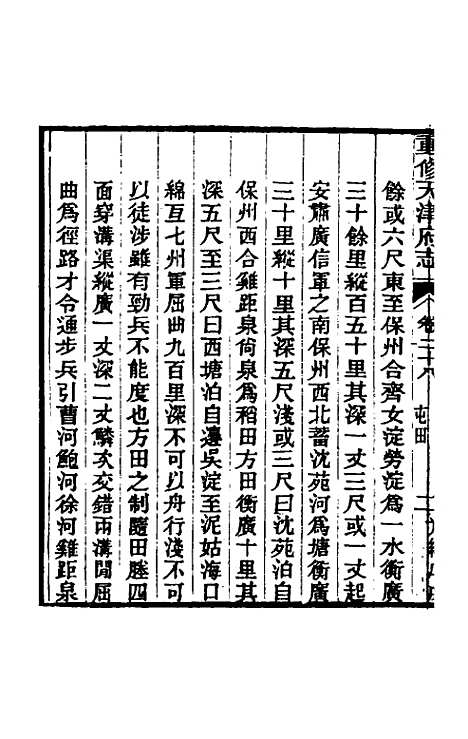 重修天津府志 卷二十八 屯田
餘或六尺東至保州合齊女淀勞淀爲一水衡廣
三十餘里縱百五十里其深一丈三尺或一丈起
安肅廣信軍之南保州西北蓄沈苑河爲塘衡廣
三十里縱十里其深五尺淺或三尺曰沈苑泊自
保州西合雞距泉尙泉爲稻田方田衡廣十里其
深五尺至三尺曰西塘泊自邊吳淀至泥姑海口
綿亙七州軍屈曲九百里深不可以舟行淺不可
以徒涉雖有勁兵不能度也方田之制隨田塍四
面穿溝渠縱廣一丈深二丈鱗次交錯兩溝閒屈
曲爲徑路才令通步兵引曹河鮑河徐河雞距泉